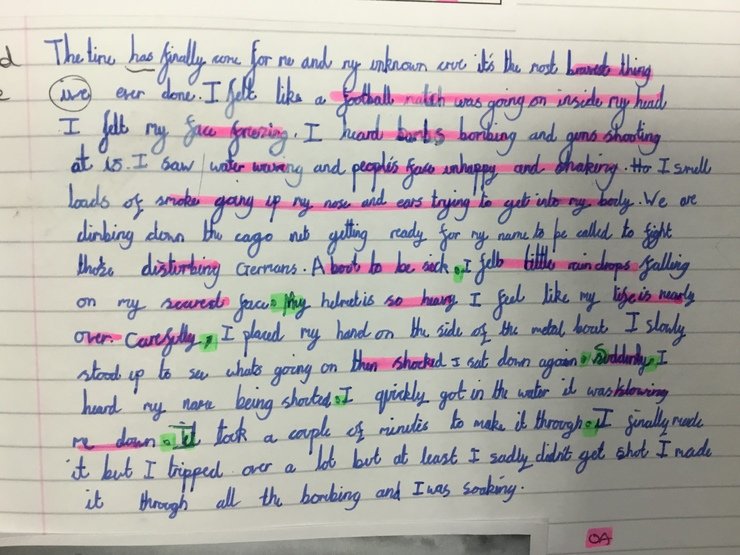 d
The time has finally come for me and my unknown crue it's the most bravest thing
e
ive ever done. I felt like a football match was going on inside my head
I felt my face freezing. I heard bombs bombing and guns shooting
at us. I saw water waving and people's face unhappy and shaking. I smell
loads of smoke going up my nose and ears trying to get into my body. We are
climbing down the cago net getting ready for my name to be called to fight
those disturbing Germans. About to be sick. I felt little rain drops falling
on my scarest face. My helmet is so heavy I feel like my life is nearly
over. Carefully, I placed my hand on the side of the metal boat I slowly
stood up to see whats going on then shocked I sat down again. Suddenly, I
heard my name being shouted. I quickly got in the water it was blowing
me down. It took a couple of minutes to make it through. I finally made
it but I tripped over a lot but at least I sadly didn't get shot I made
it through all the bombing and I was soaking.
OA